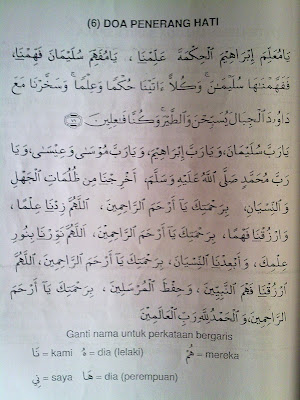 (6) DOA PENERANG HATI
يَامُعَلِّمَ إِبْرَاهِيْمَ الْحِكْمَةَ عَلِّمْنَا ، يَامُفَهِّمَ سُلَيْمَانَ فَهِّمْنَا،
فَفَهَّمْنَاهَا سُلَيْمَانَ ۚ وَكُلًّا ءَاتَيْنَا حُكْمًا وَعِلْمًا ۚ وَسَخَّرْنَا مَعَ
دَاوُۥدَ الْجِبَالَ يُسَبِّحْنَ وَالطَّيْرَ ۚ وَكُنَّا فَاعِلِينَ ﴿٧٩﴾
يَارَبَّ سُلَيْمَانَ، وَيَارَبَّ إِبْرَاهِيْمَ، وَيَارَبَّ مُوْسَى وَعِيْسَى، وَيَا
رَبَّ مُحَمَّدٍ صَلَّى اللهُ عَلَيْهِ وَسَلَّمَ، أَخْرِجْنَا مِنْ ظُلُمَاتِ الْجَهْلِ
وَالنِّسْيَانِ، بِرَحْمَتِكَ يَآ أَرْحَمَ الرَّاحِمِيْنَ، اَللَّهُمَّ زِدْنَا عِلْمًا،
وَارْزُقْنَا فَهْمًا، بِرَحْمَتِكَ يَآ أَرْحَمَ الرَّاحِمِيْنَ، اَللَّهُمَّ نَوِّرْنَا بِنُورِ
عِلْمِكَ، وَأَبْعِدْنَا النِّسْيَانَ، بِرَحْمَتِكَ يَآ أَرْحَمَ الرَّاحِمِيْنَ، اَللَّهُمَّ
ارْزُقْنَا فَهْمَ النَّبِيِّيْنَ، وَحِفْظَ الْمُرْسَلِيْنَ، بِرَحْمَتِكَ يَآ أَرْحَمَ
الرَّاحِمِيْنَ، وَالْحَمْدُ لِلَّهِ رَبِّ الْعَالَمِيْنَ
Ganti nama untuk perkataan bergaris
نَا = kami هُ = dia (lelaki) هُمْ = mereka
نِي = saya هَا = dia (perempuan)